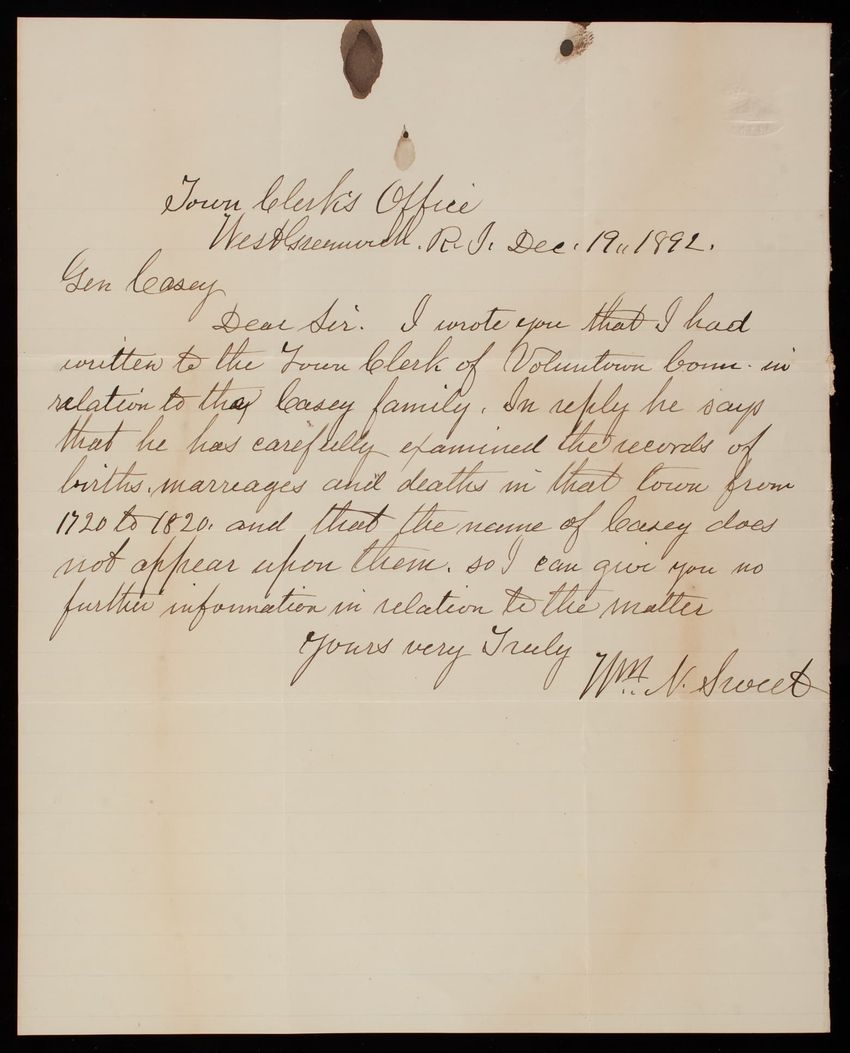 Town Clerk's Office
West Greenwich. R. I. Dec. 19" 1892.
Gen Casey
Dear Sir. I wrote you that I had
written to the Town Clerk of Voluntown Conn. in
relation to the Casey family. In reply he says
that he has carefully examined the records of
births, marreages and deaths in that town from
1720 to 1820. and that the name of Casey does
not appear upon them. so I can give you no
further information in relation to the matter
Yours very Truly
Wm. N. Sweet